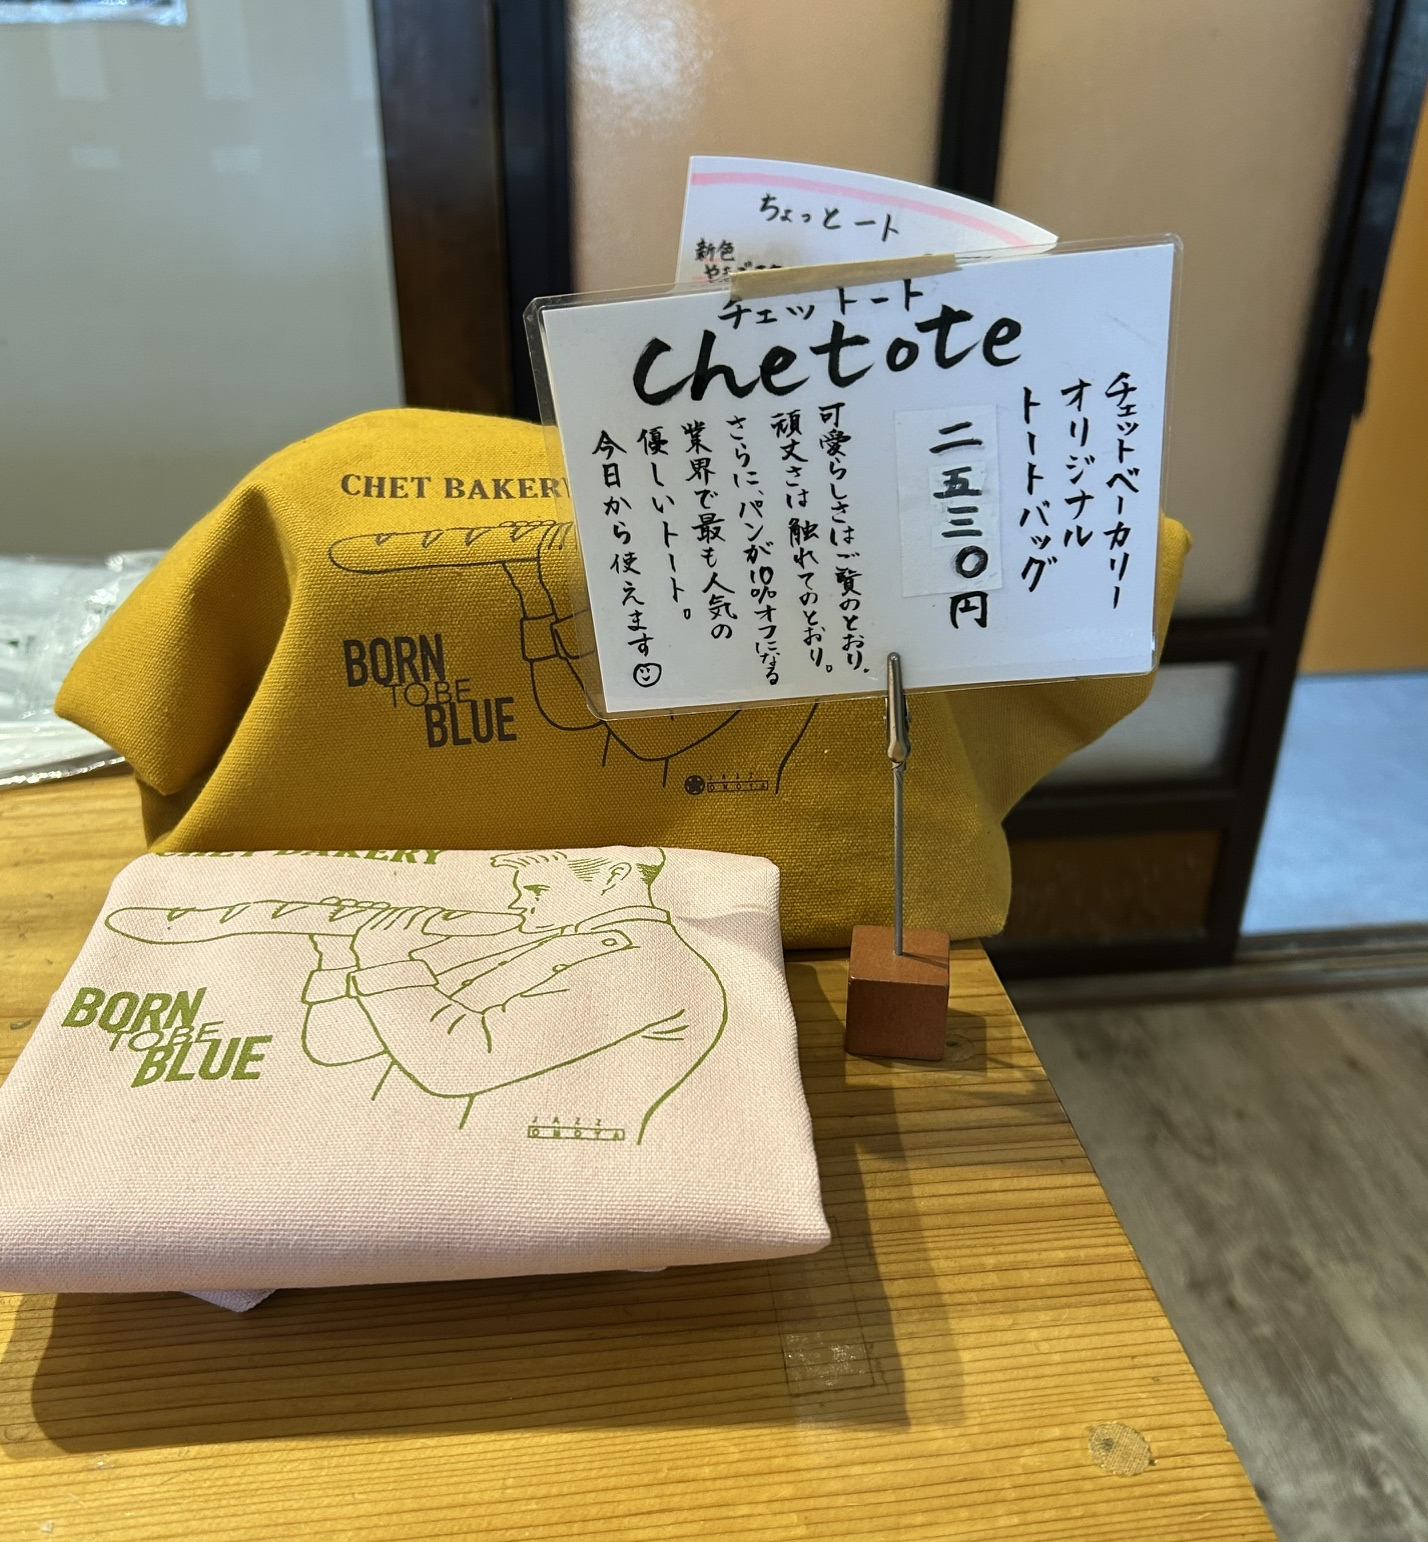 ちょっとート
新色
チェットート
Chetote
チェットベーカリー
オリジナル
トートバッグ
二五三〇円
可愛らしさはご覧のとおり。
頑丈さは触れてのとおり。
さらに、パンが10%オフになる
業界で最も人気の
優しいトート。
今日から使えます
CHET BAKERY
BORN
TO BE
BLUE
JAZZ
OMOYA
CHET BAKERY
BORN
TO BE
BLUE
JAZZ
OMOYA